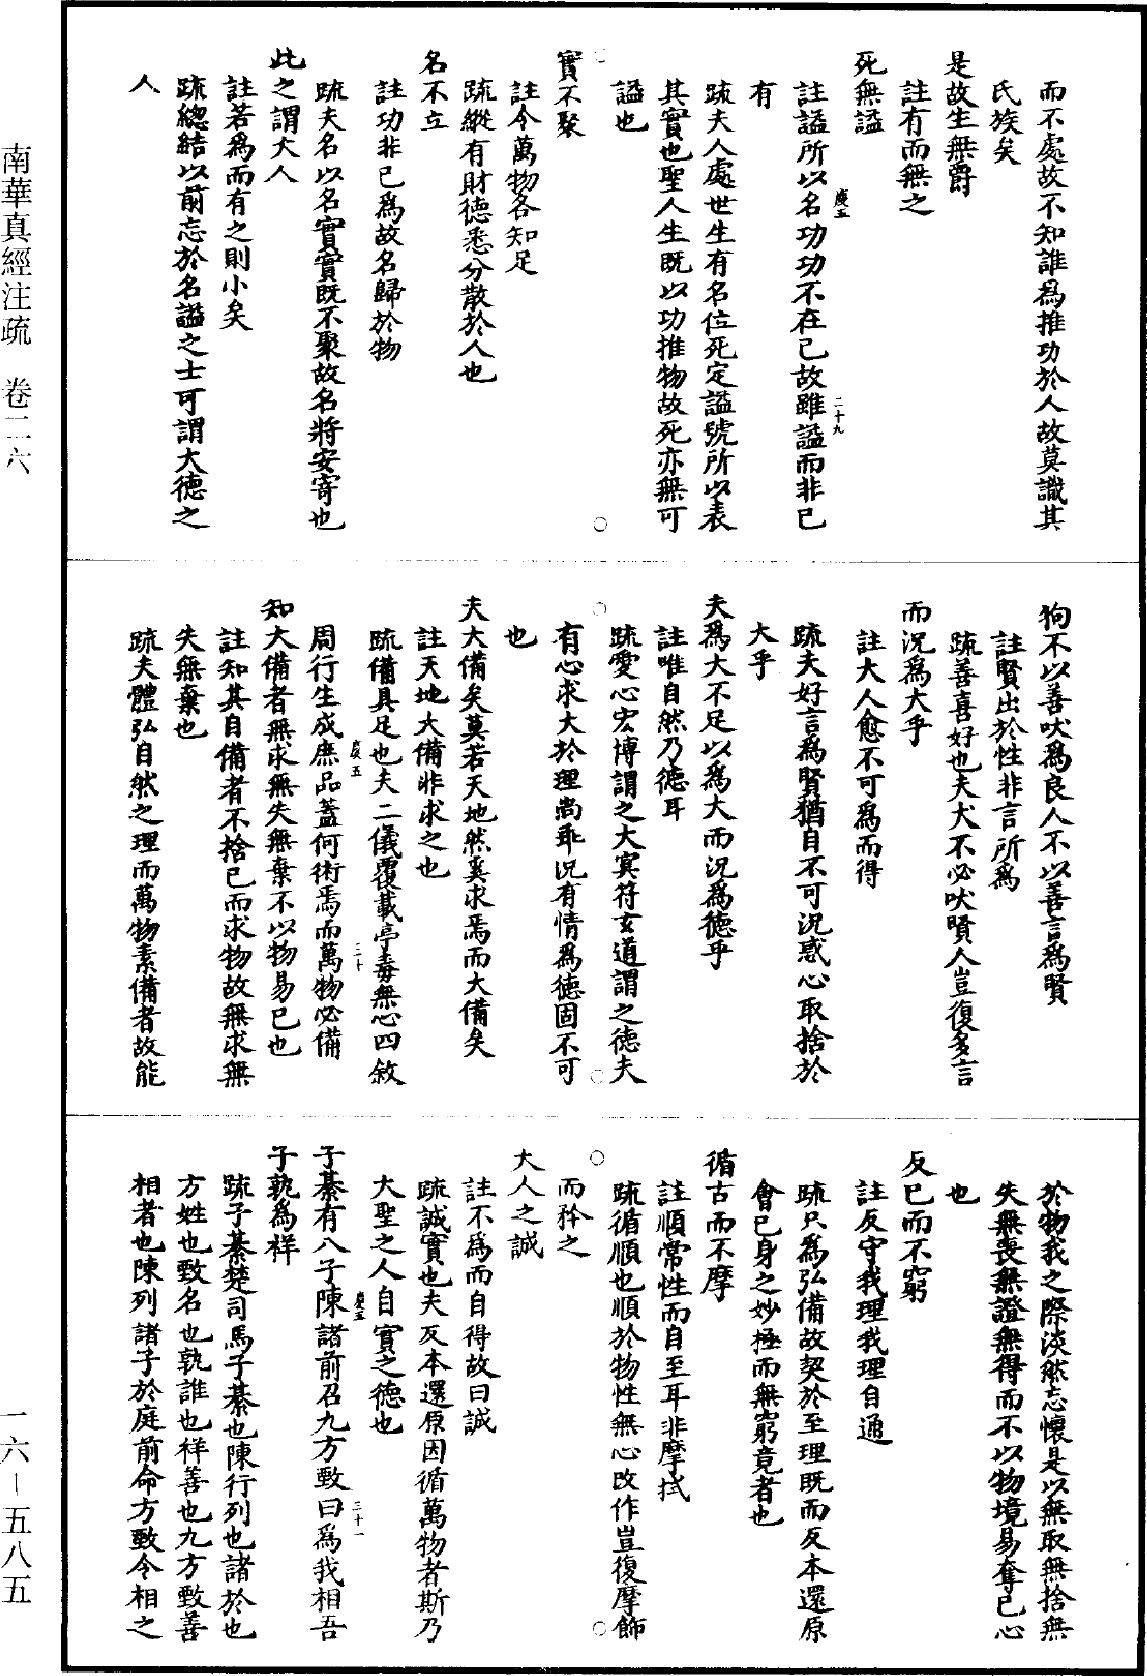 而不處故不知誰為推功於人故莫識其
氏族矣
是故生無爵
註有而無之
死無謚
註謚所以名功功不在己故雖謚而非己
有
疏夫人處世生有名位死定謚號所以表
其實也聖人生既以功推物故死亦無可
謚也
實不聚
註令萬物各知足
疏縱有財德悉分散於人也
名不立
註功非己為故名歸於物
疏夫名以名實實既不聚故名將安寄也
此之謂大人
註若為而有之則小矣
疏總結以前忘於名謚之士可謂大德之
人
慶五
二十九
狗不以善吠為良人不以善言為賢
註賢出於性非言所為
疏善喜好也夫犬不必吠賢人豈復多言
而況為大乎
註大人愈不可為而得
疏夫好言為賢猶自不可況惑心取捨於
大乎
夫為大不足以為大而況為德乎
註唯自然乃德耳
疏愛心宏博謂之大冥符玄道謂之德夫
有心求大於理尚乖況有情為德固不可
也
夫大備矣莫若天地然奚求焉而大備矣
註天地大備非求之也
疏備具足也夫二儀覆載亭毒無心四敘
周行生成庶品蓋何術焉而萬物必備
知大備者無求無失無棄不以物易己也
註知其自備者不捨己而求物故無求無
失無棄也
疏夫體弘自然之理而萬物素備者故能
慶五
三十
於物我之際淡然忘懷是以無取無捨無
失無喪無證無得而不以物境易奪己心
也
反己而不窮
註反守我理我理自通
疏只為弘備故契於至理既而反本還原
會己身之妙極而無窮竟者也
循古而不摩
註順常性而自至耳非摩拭
疏循順也順於物性無心改作豈復摩飾
而矜之
大人之誠
註不為而自得故曰誠
疏誠實也夫反本還原因循萬物者斯乃
大聖之人自實之德也
子綦有八子陳諸前召九方歅曰為我相吾
子孰為祥
疏子綦楚司馬子綦也陳行列也諸於也
方姓也歅名也孰誰也祥善也九方歅善
相者也陳列諸子於庭前命方歅令相之
慶五
三十一
南華真經注疏　卷二六
一六－五八五